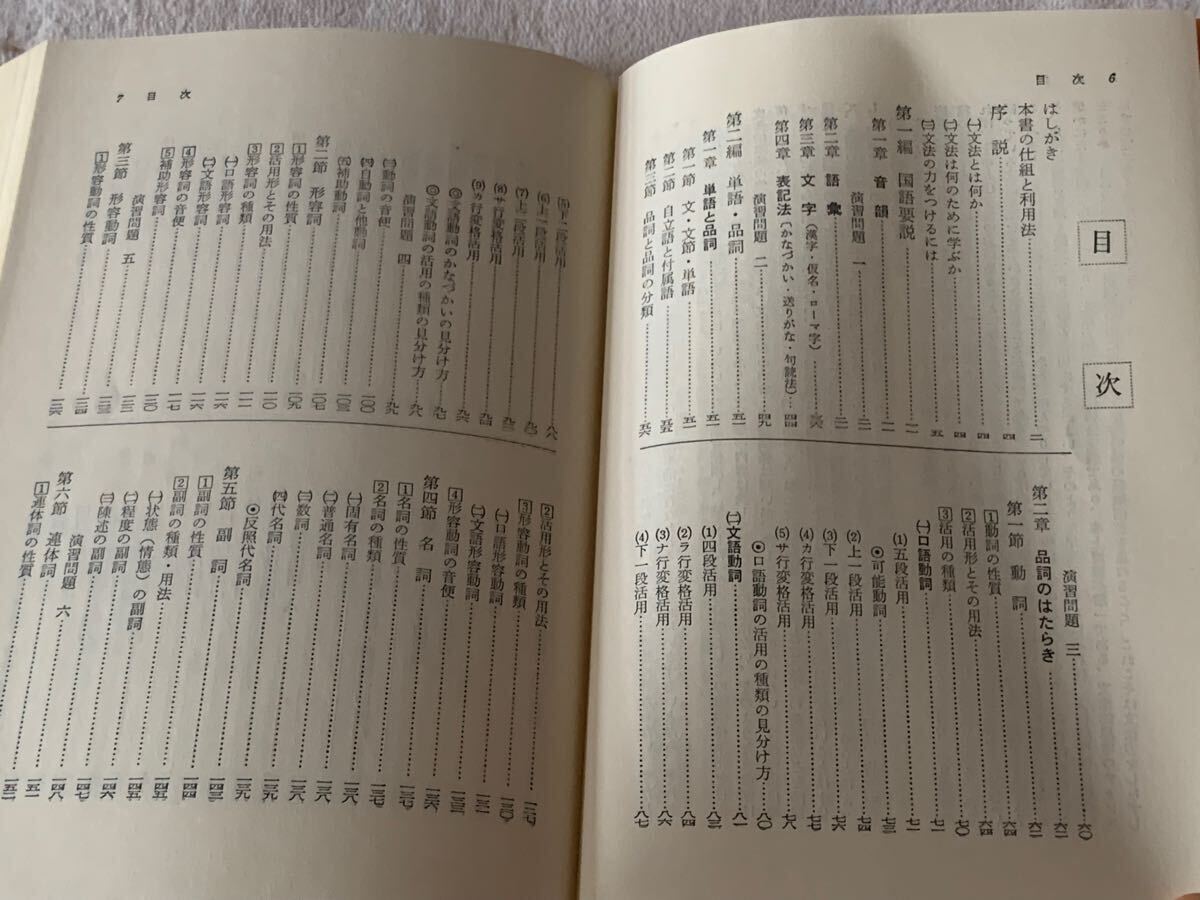 目次 6
目次
はしがき
本書の仕組と利用法……二
序説……四
㈠文法とは何か……四
㈡文法は何のために学ぶか……四
㈢文法の力をつけるには……五
第一編 国語要説……二
第一章 音韻……二
演習問題 一
第二章 語彙
第三章 文字(漢字・仮名・ローマ字)
第四章 表記法(かなづかい・送りがな・句読法)……四四
演習問題 二……四九
第二編 単語・品詞……五一
第一章 単語と品詞……五一
第一節 文・文節・単語……五一
第二節 自立語と付属語……五五
第三節 品詞と品詞の分類……五六
演習問題 三……六〇
第二章 品詞のはたらき……六二
第一節 動詞……六二
1動詞の性質……六四
2活用形とその用法……七〇
3活用の種類……七一
㈠口語動詞……七一
⑴五段活用……七一
◉可能動詞……七三
⑵上一段活用……七四
⑶下一段活用……七六
⑷カ行変格活用……七七
⑸サ行変格活用……七八
◉口語動詞の活用の種類の見分け方……八〇
㈡文語動詞……八一
⑴四段活用……八三
⑵ラ行変格活用……八四
⑶ナ行変格活用……八六
⑷下一段活用……八七
7 目次
⑸下二段活用……八八
⑹上一段活用
⑺上二段活用
⑻サ行変格活用……九四
⑼カ行変格活用……九六
◎文語動詞のかなづかいの見分け方……九七
◎文語動詞の活用の種類の見分け方……九八
演習問題 四……九九
㈢動詞の音便
㈣自動詞と他動詞……一〇〇
㈤補助動詞……一〇三
第二節 形容詞……一〇七
1形容詞の性質……一〇九
2活用形とその用法……一一〇
3形容詞の種類……一一一
㈠口語形容詞……一一一
㈡文語形容詞……一一六
4形容詞の音便……一一六
5補助形容詞……一一七
演習問題 五
第三節 形容動詞
1形容動詞の性質
2活用形とその用法……一二七
3形容動詞の種類……一三〇
㈠口語形容動詞……一三〇
㈡文語形容動詞……一三一
4形容動詞の音便……一三三
第四節 名詞……一三六
1名詞の性質……一三七
2名詞の種類……一三七
㈠固有名詞……一三八
㈡普通名詞……一三八
㈢数詞……一三八
㈣代名詞……一三九
◉反照代名詞……一三九
第五節 副詞……一四三
1副詞の性質……一四四
2副詞の種類・用法……一四四
㈠状態(情態)の副詞……一四五
㈡程度の副詞……一四五
㈢陳述の副詞……一四六
演習問題 六……一四七
第六節 連体詞
1連体詞の性質